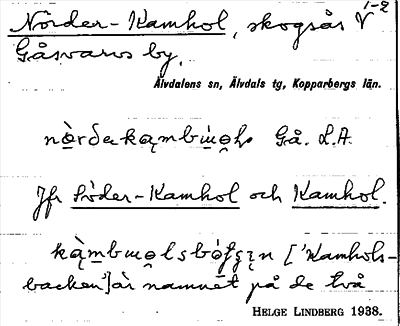 1-2
Norder-Kamhol, skogsås V
Gåsvarvs by.
Älvdalens sn, Älvdals tg, Kopparbergs län.
Gå. L.A.
Jfr Söder-Kamhol och Kamhol.
['Kamhols-
backen'] är namnet på de två
HELGE LINDBERG 1938.